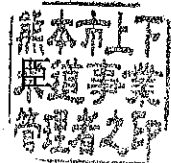 熊本市上下
水道事業
管理者之印